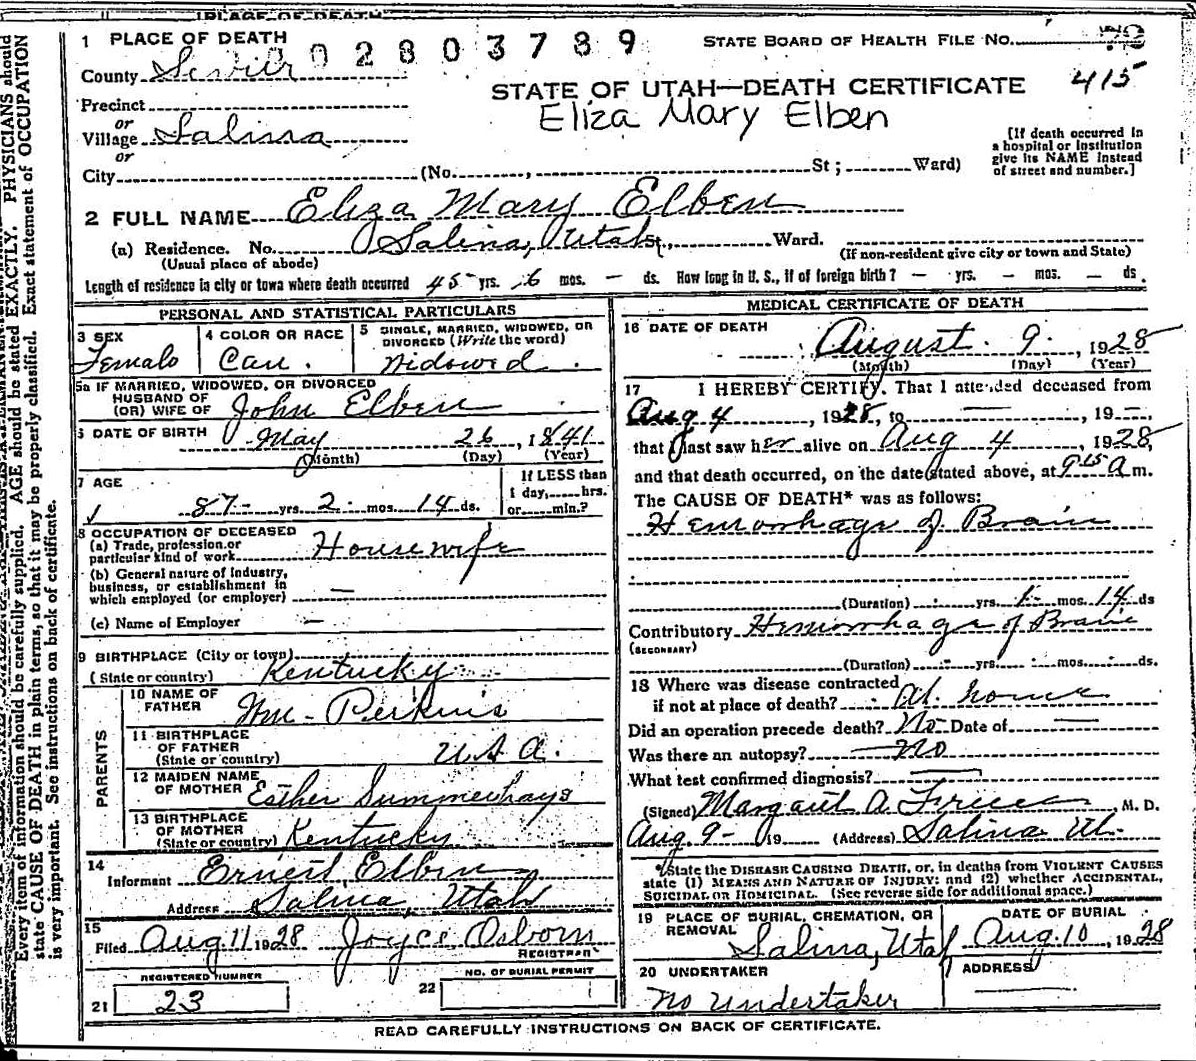 1 PLACE OF DEATH
02803789
STATE BOARD OF HEALTH FILE NO.
County Sevier
415
STATE OF UTAH—DEATH CERTIFICATE
Precinct
Eliza Mary Elben
or
Village Salina
or
City (No. , St ; Ward)
[If death occurred in
a hospital or institution
give its NAME instead
of street and number.]
2 FULL NAME Eliza Mary Elben
(a) Residence. No. Salina, Utah St., Ward.
(Usual place of abode)
(If non-resident give city or town and State)
Length of residence in city or town where death occurred 45 yrs. 6 mos. — ds. How long in U. S., if of foreign birth? — yrs. — mos. — ds.
PERSONAL AND STATISTICAL PARTICULARS
3 SEX
Female
4 COLOR OR RACE
Cau.
5 SINGLE, MARRIED, WIDOWED, OR
DIVORCED (Write the word)
Widowed
5a IF MARRIED, WIDOWED, OR DIVORCED
HUSBAND OF
(OR) WIFE OF John Elben
6 DATE OF BIRTH May 26, 1841
(Month) (Day) (Year)
7 AGE
87 yrs. 2 mos. 14 ds.
If LESS than
1 day, hrs.
or min.?
8 OCCUPATION OF DECEASED
(a) Trade, profession, or
particular kind of work Housewife
(b) General nature of Industry,
business, or establishment in
which employed (or employer) —
(c) Name of Employer —
9 BIRTHPLACE (City or town)
(State or country) Kentucky
PARENTS
10 NAME OF
FATHER Wm. Perkins
11 BIRTHPLACE
OF FATHER
(State or country) U S A.
12 MAIDEN NAME
OF MOTHER Esther Summerhays
13 BIRTHPLACE
OF MOTHER
(State or country) Kentucky
14
Informant Ernest Elben
Address Salina, Utah
15
Filed Aug 11 1928 Joyce Osborn
REGISTRAR
REGISTERED NUMBER
21 23
NO. OF BURIAL PERMIT
22
MEDICAL CERTIFICATE OF DEATH
16 DATE OF DEATH
August 9, 1928
(Month) (Day) (Year)
17 I HEREBY CERTIFY, That I attended deceased from
Aug 4, 1928, to —, 19—,
that I last saw her alive on Aug 4, 1928,
and that death occurred, on the date stated above, at 9 15 a m.
The CAUSE OF DEATH* was as follows:
Hemorrhage of Brain
(Duration) yrs. 1 mos. 14 ds
Contributory Hemorrhage of Brain
(SECONDARY)
(Duration) yrs. mos. ds.
18 Where was disease contracted
if not at place of death? At home
Did an operation precede death? No Date of —
Was there an autopsy? No
What test confirmed diagnosis? —
(Signed) Margaret A. , M. D.
Aug. 9- 19 (Address) Salina Ut.
*State the DISEASE CAUSING DEATH, or, in deaths from VIOLENT CAUSES
state (1) MEANS AND NATURE OF INJURY; and (2) whether ACCIDENTAL,
SUICIDAL OR HOMICIDAL. (See reverse side for additional space.)
19 PLACE OF BURIAL, CREMATION, OR
REMOVAL
Salina, Utah
DATE OF BURIAL
Aug. 10, 1928
20 UNDERTAKER
No Undertaker
ADDRESS
READ CAREFULLY INSTRUCTIONS ON BACK OF CERTIFICATE.
Every item of information should be carefully supplied. AGE should be stated EXACTLY. PHYSICIANS should
state CAUSE OF DEATH in plain terms, so that it may be properly classified. Exact statement of OCCUPATION
is very important. See instructions on back of certificate.